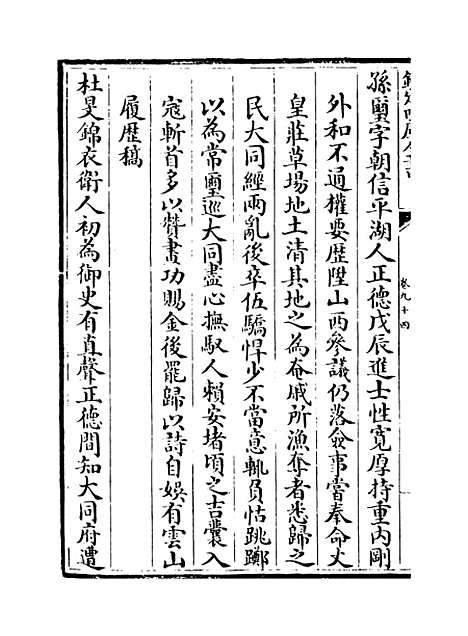 欽定四庫全書
卷九十四
孫璽字朝信平湖人正德戊辰進士性寛厚持重内剛
外和不通權要歴陞山西參議仍落僉事嘗奉命丈
皇莊草場地土清其地之為奄戚所漁奪者悉歸之
民大同經兩亂後卒伍驕悍少不當意輒負怙跳躑
以為常璽巡大同盡心撫馭人頼安堵頃之吉囊入
寇斬首多以贊畫功賜金後罷歸以詩自娛有雲山
履歴稿
杜旻錦衣衛人初為御史有直聲正德間知大同府遭